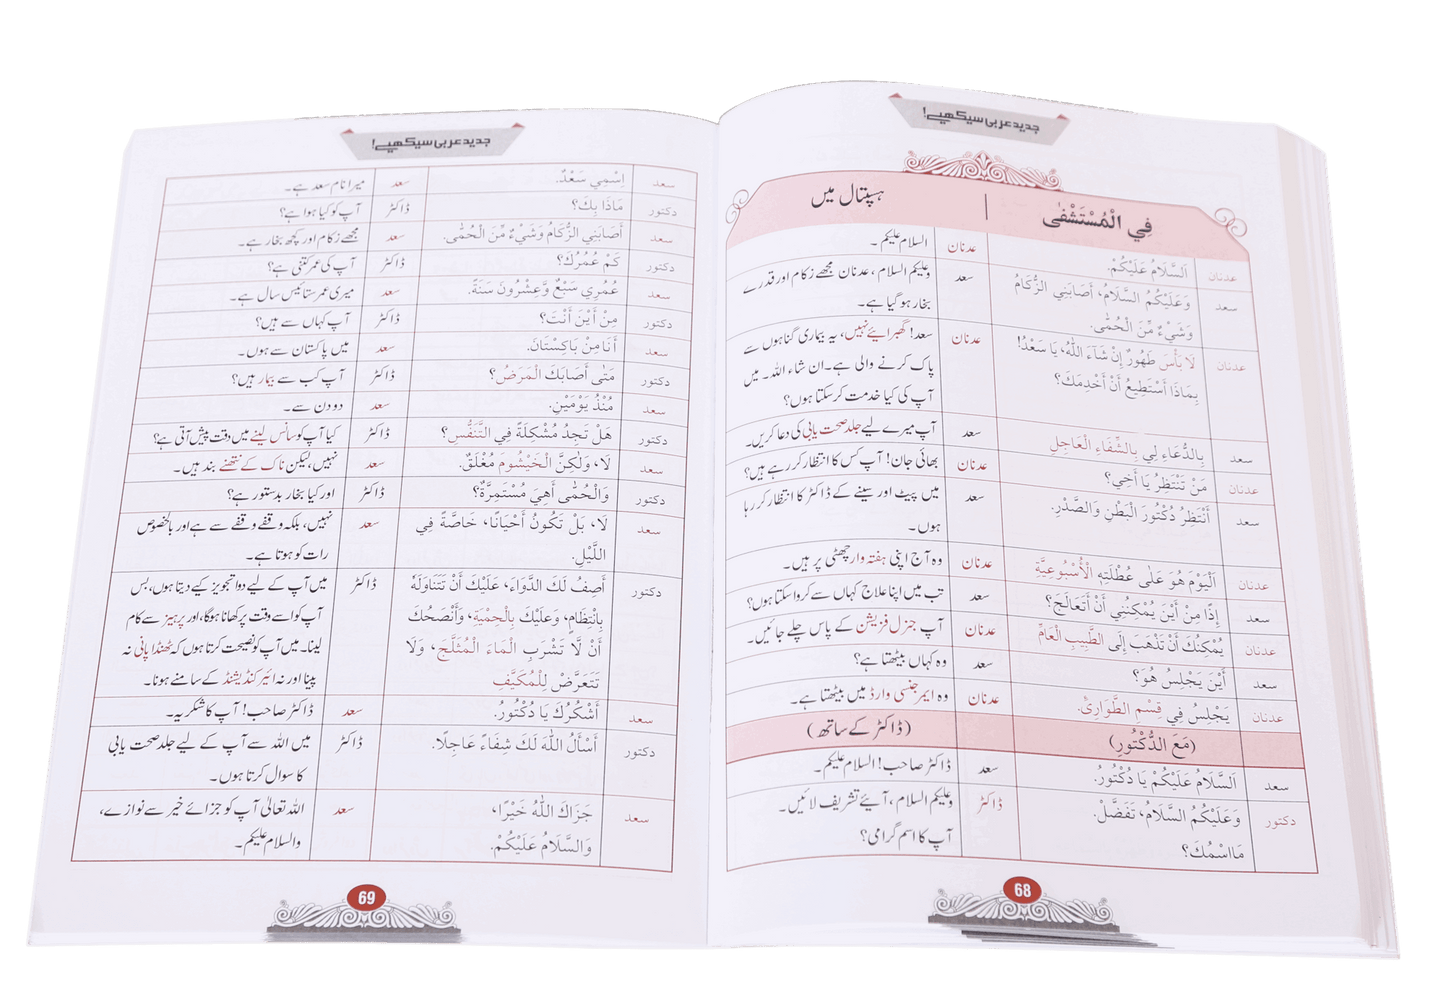 جدید عربی سیکھیے!
فِي الْمُسْتَشْفٰى | ہسپتال میں
عدنان اَلسَّلَامُ عَلَيْكُمْ. عدنان السلام علیکم۔
سعد وَعَلَيْكُمُ السَّلَامُ، أَصَابَنِي الزُّكَامُ سعد وعلیکم السلام، عدنان مجھے زکام اور قدرے
وَشَيْءٌ مِّنَ الْحُمّٰى. بخار ہو گیا ہے۔
عدنان لَا بَأْسَ طَهُورٌ إِنْ شَآءَ اللّٰهُ، يَا سَعْدُ! عدنان سعد! گھبرائیے نہیں، یہ بیماری گناہوں سے
بِمَاذَا أَسْتَطِيعُ أَنْ أَخْدِمَكَ؟ پاک کرنے والی ہے۔ ان شاء اللہ۔ میں
آپ کی کیا خدمت کر سکتا ہوں؟
سعد بِالدُّعَاءِ لِي بِالشِّفَاءِ الْعَاجِلِ سعد آپ میرے لیے جلد صحت یابی کی دعا کریں۔
عدنان مَنْ تَنْتَظِرُ يَا أَخِي؟ عدنان بھائی جان! آپ کس کا انتظار کر رہے ہیں؟
سعد أَنْتَظِرُ دُكْتُورَ الْبَطْنِ وَالصَّدْرِ. سعد میں پیٹ اور سینے کے ڈاکٹر کا انتظار کر رہا
ہوں۔
عدنان اَلْيَوْمَ هُوَ عَلٰى عُطْلَتِهِ الْأُسْبُوعِيَّةِ عدنان وہ آج اپنی ہفتہ وار چھٹی پر ہیں۔
سعد إِذًا مِنْ أَيْنَ يُمْكِنُنِي أَنْ أَتَعَالَجَ؟ سعد تب میں اپنا علاج کہاں سے کروا سکتا ہوں؟
عدنان يُمْكِنُكَ أَنْ تَذْهَبَ إِلَى الطَّبِيبِ الْعَامِّ عدنان آپ جنرل فزیشن کے پاس چلے جائیں۔
سعد أَيْنَ يَجْلِسُ هُوَ؟ سعد وہ کہاں بیٹھتا ہے؟
عدنان يَجْلِسُ فِي قِسْمِ الطَّوَارِئِ. عدنان وہ ایمرجنسی وارڈ میں بیٹھتا ہے۔
(مَعَ الدُّكْتُورِ) (ڈاکٹر کے ساتھ)
سعد اَلسَّلَامُ عَلَيْكُمْ يَا دُكْتُورُ. سعد ڈاکٹر صاحب! السلام علیکم۔
دکتور وَعَلَيْكُمُ السَّلَامُ، تَفَضَّلْ. ڈاکٹر وعلیکم السلام، آئیے تشریف لائیں۔
مَااسْمُكَ؟ آپ کا اسم گرامی؟
68
جدید عربی سیکھیے!
سعد اِسْمِي سَعْدٌ. سعد میرا نام سعد ہے۔
دکتور مَاذَا بِكَ؟ ڈاکٹر آپ کو کیا ہوا ہے؟
سعد أَصَابَنِي الزُّكَامُ وَشَيْءٌ مِّنَ الْحُمّٰى. سعد مجھے زکام اور کچھ بخار ہے۔
دکتور كَمْ عُمُرُكَ؟ ڈاکٹر آپ کی عمر کتنی ہے؟
سعد عُمُرِي سَبْعٌ وَّعِشْرُونَ سَنَةً. سعد میری عمر ستائیس سال ہے۔
دکتور مِنْ أَيْنَ أَنْتَ؟ ڈاکٹر آپ کہاں سے ہیں؟
سعد أَنَا مِنْ بَاكِسْتَانَ. سعد میں پاکستان سے ہوں۔
دکتور مَتٰى أَصَابَكَ الْمَرَضُ؟ ڈاکٹر آپ کب سے بیمار ہیں؟
سعد مُنْذُ يَوْمَيْنِ. سعد دو دن سے۔
دکتور هَلْ تَجِدُ مُشْكِلَةً فِي التَّنَفُّسِ؟ ڈاکٹر کیا آپ کو سانس لینے میں دقت پیش آتی ہے؟
سعد لَا، وَلٰكِنَّ الْخَيْشُومَ مُغْلَقٌ. سعد نہیں، لیکن ناک کے نتھنے بند ہیں۔
دکتور وَالْحُمّٰى أَهِيَ مُسْتَمِرَّةٌ؟ ڈاکٹر اور کیا بخار بدستور ہے؟
سعد لَا، بَلْ تَكُونُ أَحْيَانًا، خَاصَّةً فِي سعد نہیں، بلکہ وقفے وقفے سے ہے اور بالخصوص
اللَّيْلِ. رات کو ہوتا ہے۔
دکتور أَصِفُ لَكَ الدَّوَاءَ، عَلَيْكَ أَنْ تَتَنَاوَلَهُ ڈاکٹر میں آپ کے لیے دوا تجویز کیے دیتا ہوں، بس
بِانْتِظَامٍ، وَعَلَيْكَ بِالْحِمْيَةِ، وَأَنْصَحُكَ آپ کو اسے وقت پر کھانا ہوگا، اور پرہیز سے کام
أَنْ لَّا تَشْرَبَ الْمَاءَ الْمُثَلَّجَ، وَلَا لینا۔ میں آپ کو نصیحت کرتا ہوں کہ ٹھنڈا پانی نہ
تَتَعَرَّضْ لِلْمُكَيَّفِ پینا اور نہ ائیر کنڈیشنڈ کے سامنے ہونا۔
سعد أَشْكُرُكَ يَا دُكْتُورُ. سعد ڈاکٹر صاحب! آپ کا شکریہ۔
دکتور أَسْأَلُ اللّٰهَ لَكَ شِفَاءً عَاجِلًا. ڈاکٹر میں اللہ سے آپ کے لیے جلد صحت یابی
کا سوال کرتا ہوں۔
سعد جَزَاكَ اللّٰهُ خَيْرًا، سعد اللہ تعالیٰ آپ کو جزائے خیر سے نوازے،
وَالسَّلَامُ عَلَيْكُمْ. والسلام علیکم۔
69